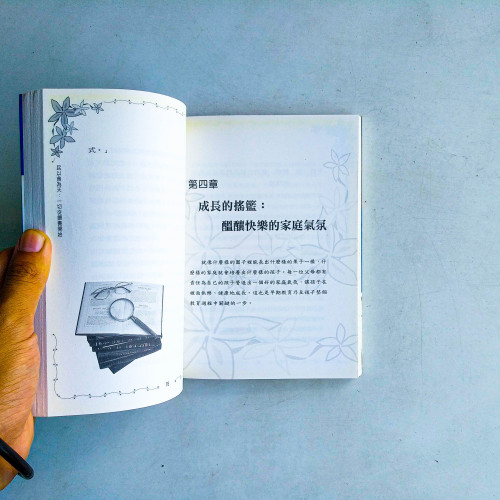 式。」
第四章
成長的搖籃：
醞釀快樂的家庭氣氛
就像什麼樣的園子裡能長出什麼樣的果子一�，什
麼樣的家庭就會培養出什麼樣的孩子。每一位父母都有
責任為自己的孩子營造出一個好的家庭氣氛，讓孩子在
裡面快樂、健康地成長，這也是早期教育乃至孩子整個
教育過程中關鍵的一步。